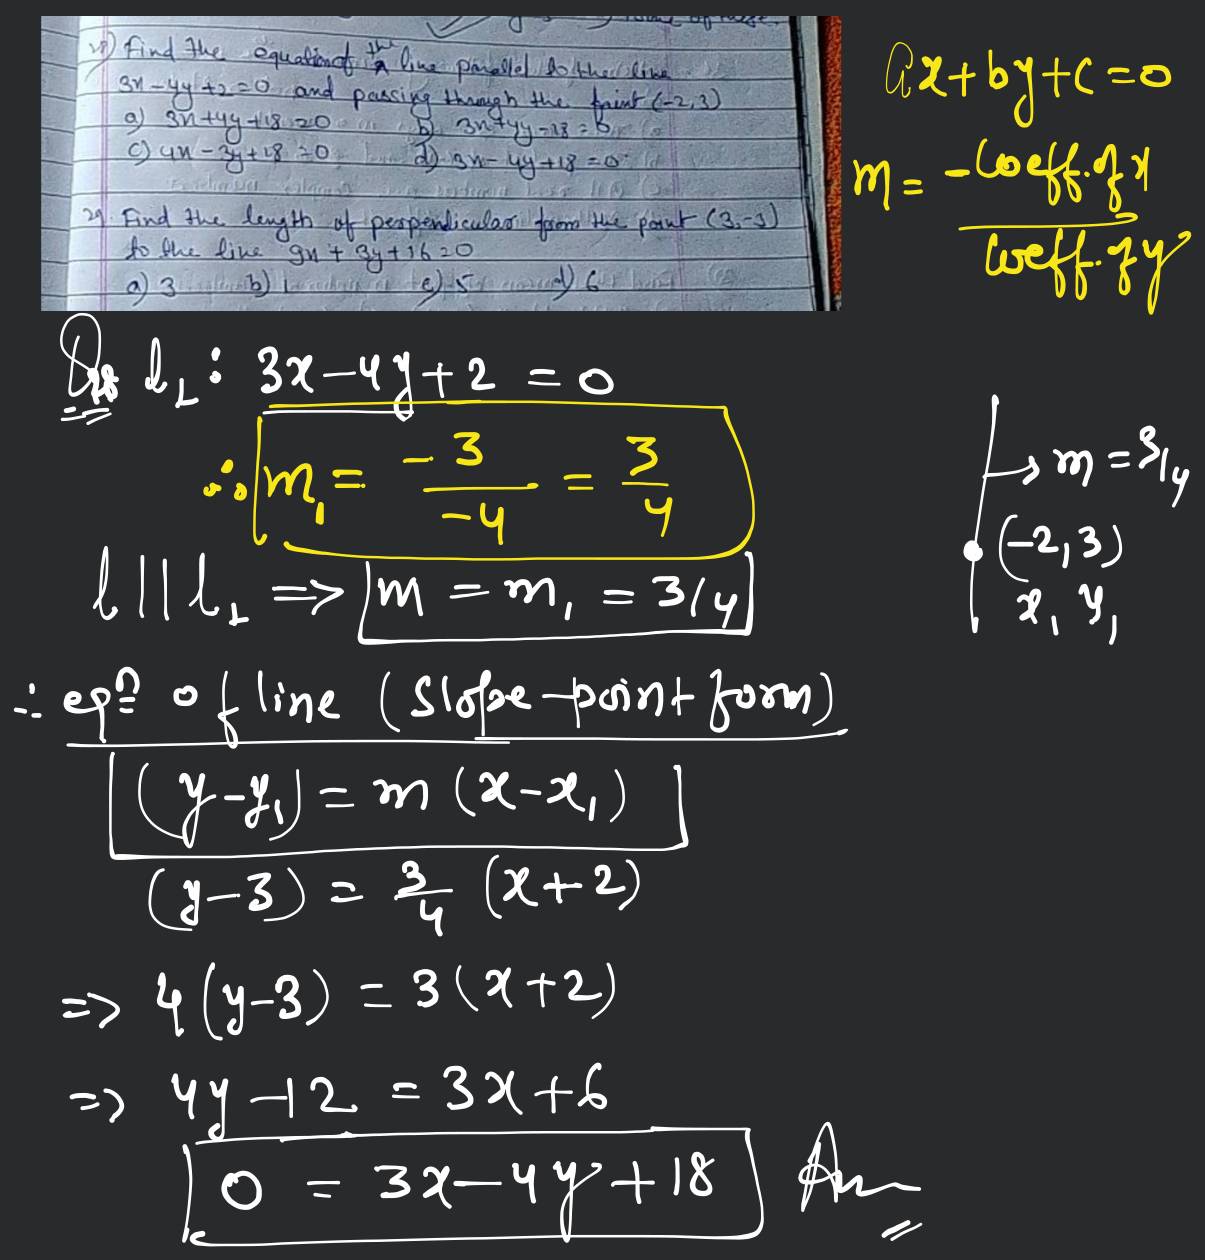 28) Find the equation of the line parallel to the line
3x-4y+2=0 and passing through the point (-2,3)
a) 3x+4y+18=0 b) 3x+4y-18=0
c) 4x-3y+18=0 d) 3x-4y+18=0
29) Find the length of perpendicular from the point (3,-3)
to the line 9x+3y+16=0
a) 3 b) 1 c) 5 d) 6
ax+by+c=0
m = -coeff. of x / coeff. of y
l₁ : 3x-4y+2 = 0
∴ m₁ = -3/-4 = 3/4
→ m = 3/4
(-2,3)
x₁ y₁
l || l₁ => m = m₁ = 3/4
∴ eqn of line (slope-point form)
(y-y₁) = m (x-x₁)
(y-3) = 3/4 (x+2)
=> 4(y-3) = 3(x+2)
=> 4y-12 = 3x+6
0 = 3x-4y+18 Ans